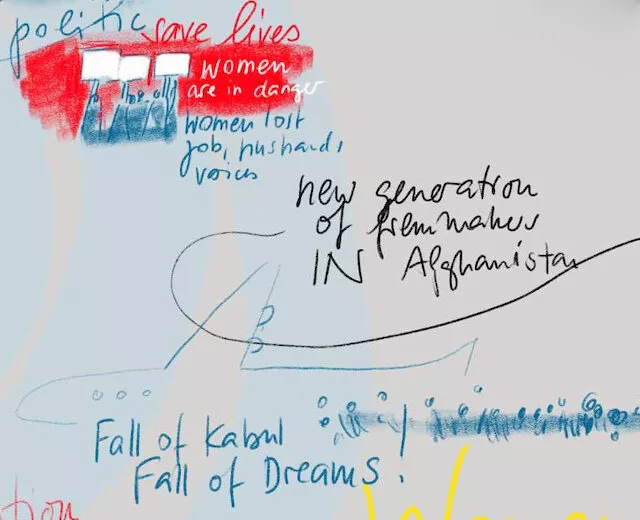 politic save lives
women
are in danger
women lost
job, husband,
voices
new generation
of filmmakers
IN Afghanistan
Fall of Kabul
Fall of Dreams.